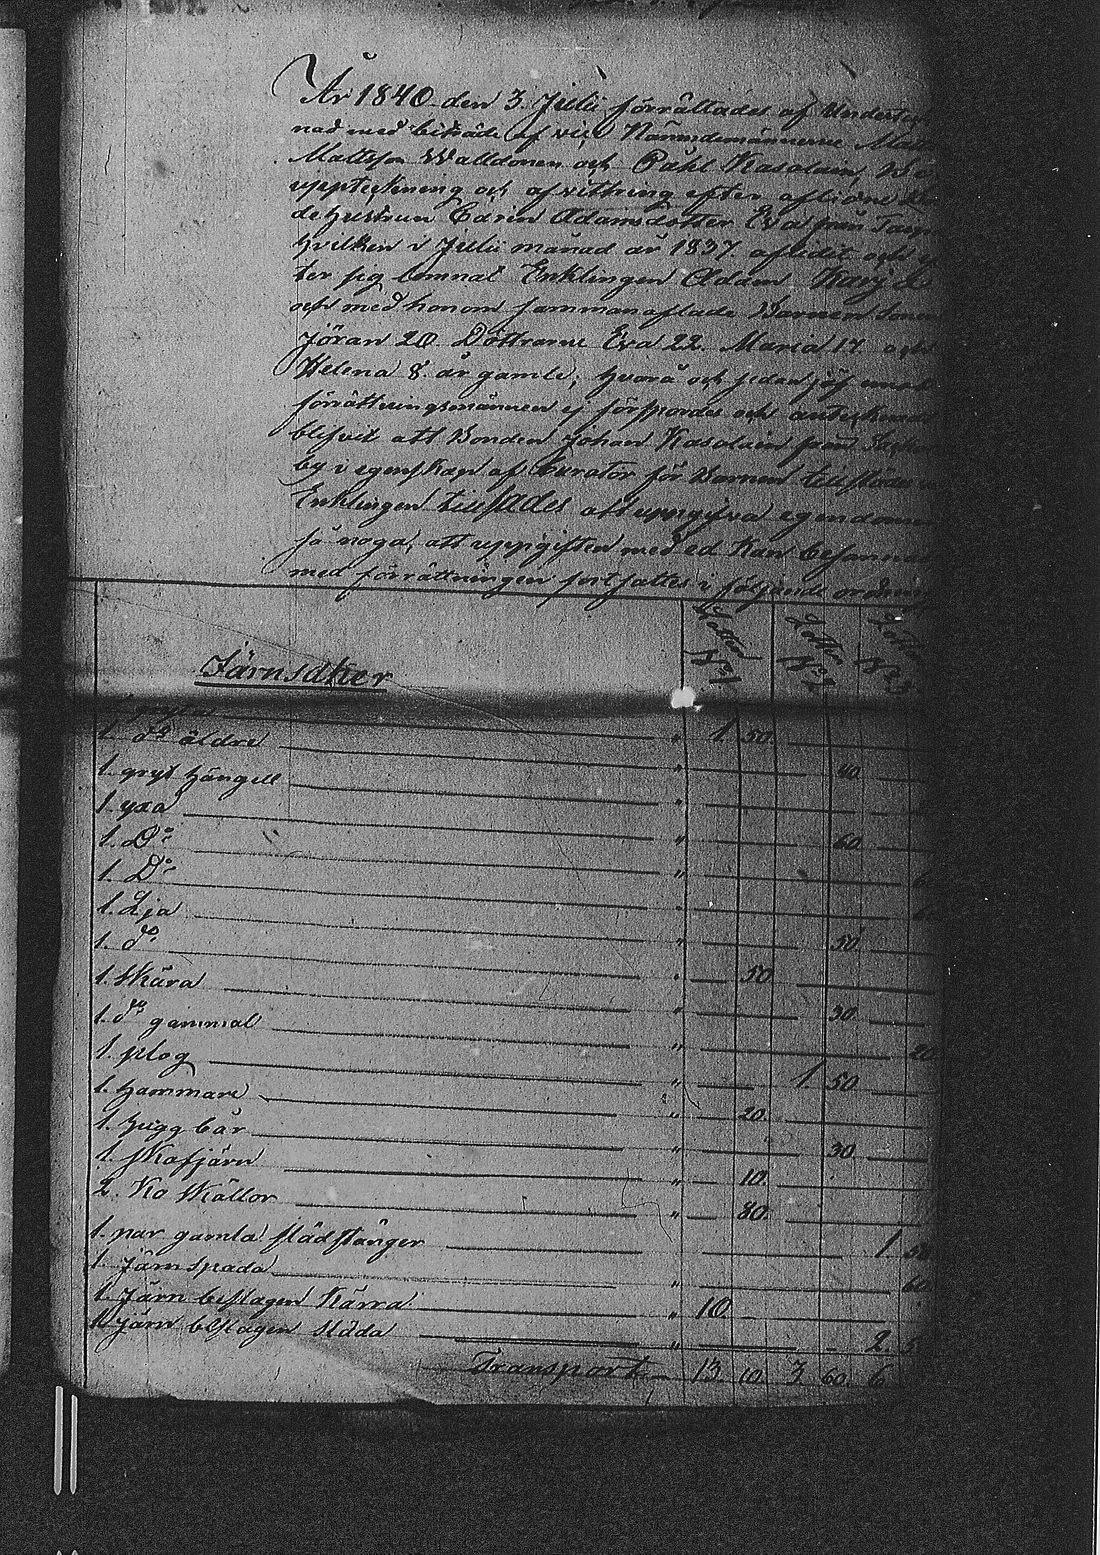 År 1840 den 3. Julii förrättades af Underteck
nad med biträde af Nämndemännerne Matts
Mattsson Walldonen och Påhl Kasolain, Bo
uppteckning och afvittring efter aflidne
de hustrun Carin Adamsdotter Eva från
hvilken i Julii månad år 1837. aflidit och ef
ter sig lemnat Enklingen Addam Karj
och med honom sammanaflade Barnen Sonen
Jöran 20. Döttrarne Eva 22. Maria 17 och
Helena 8. år gamle; hvarå och sedan
förrättningsmännen ej förspordes och antecknad
blifvit att Bonden Johan Kasolain från
by i egenskap af Curator för Barnen tillstädes
Enklingen tillsades att uppgifva egendomen
så noga, att uppgiften med ed kan besannas
med förrättningen fortsattes i följande ordning
Järnsaker
Lotten N:1 Lotten N:2 Lotten N:3
1. gryta
1. d:o äldre " 1 50.
1. gryt hängell " 40
1. yxa "
1. D:o " 60
1. D:o "
1. Lja "
1. d:o " 50
1. Skära " 50
1. d:o gammal " 30
1. plog " 20
1. hammare " 1 50
1. hugg bår " 20.
1. skafjärn " 30
2. Ko Skällor " 10.
1. par gamla städ stänger " 80.
1. järnspada 1
1. Järn beslagen Kärra " 60
1. järn beslagen släda " 10
" 2.
Transport 13 10 3 60 6